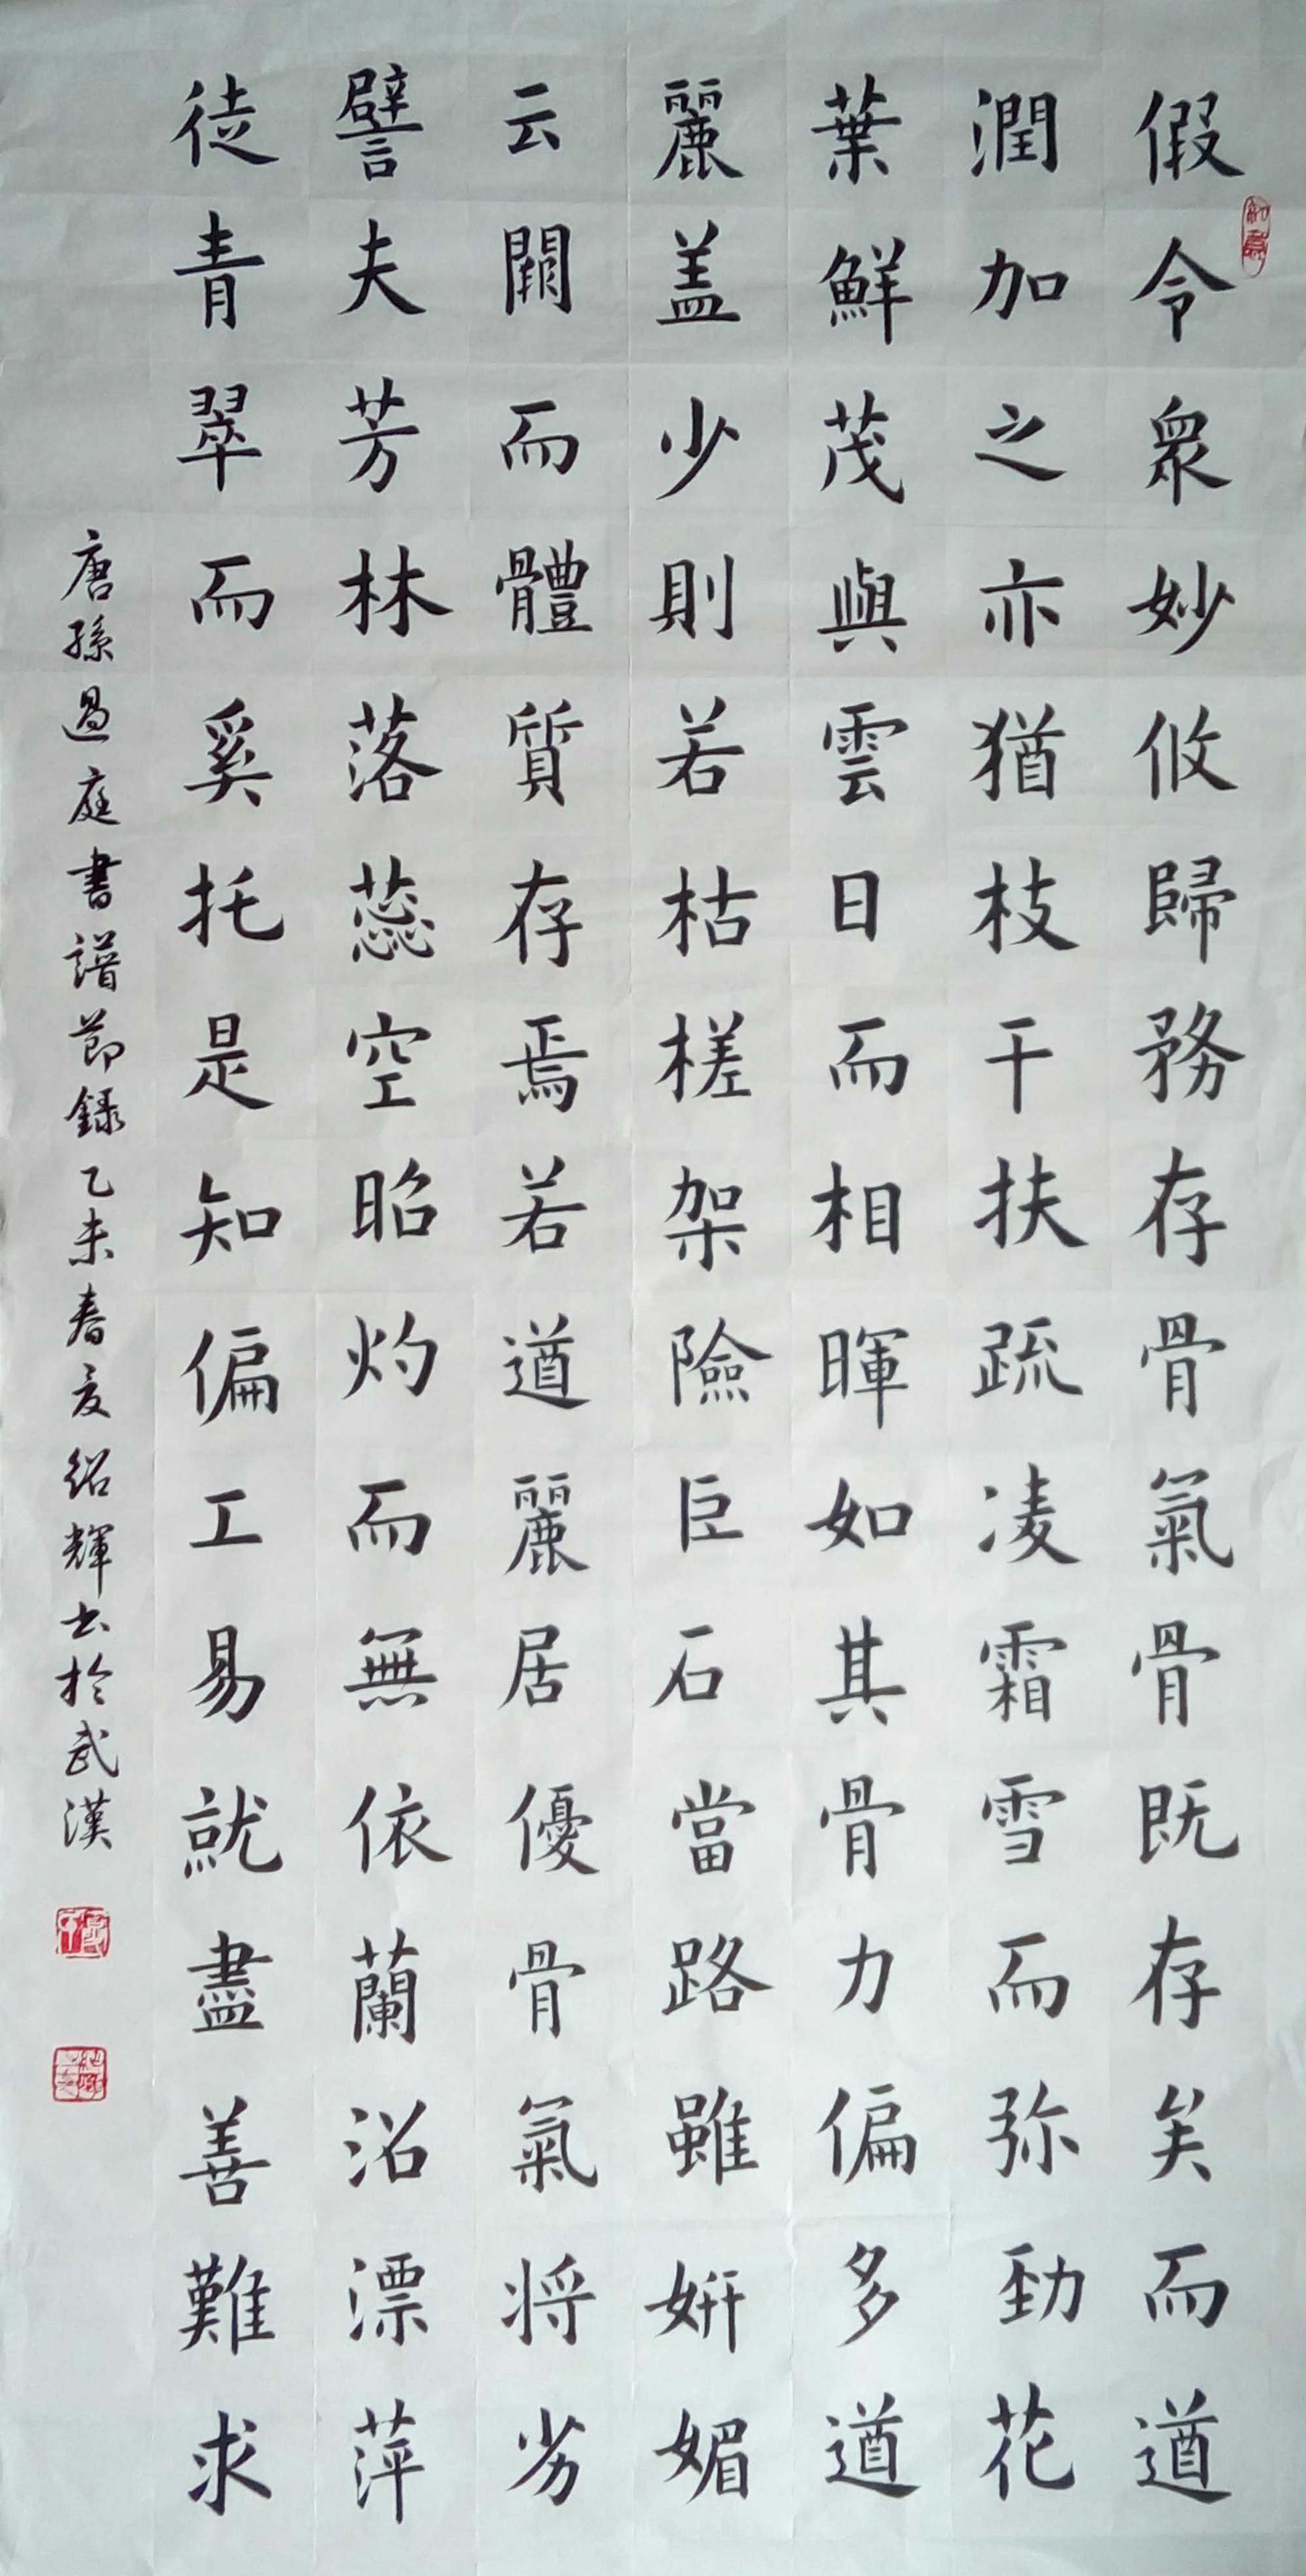 假令衆妙攸歸務存骨氣骨既存矣而遒
潤加之亦猶枝干扶疏凌霜雪而弥勁花
葉鮮茂與雲日而相暉如其骨力偏多遒
麗盖少則若枯槎架險巨石當路雖妍媚
云闕而體質存焉若遒麗居優骨氣将劣
譬夫芳林落蕊空昭灼而無依蘭沼漂萍
徒青翠而奚托是知偏工易就盡善難求
唐孫過庭書譜節録乙未春夏紹輝书於武漢